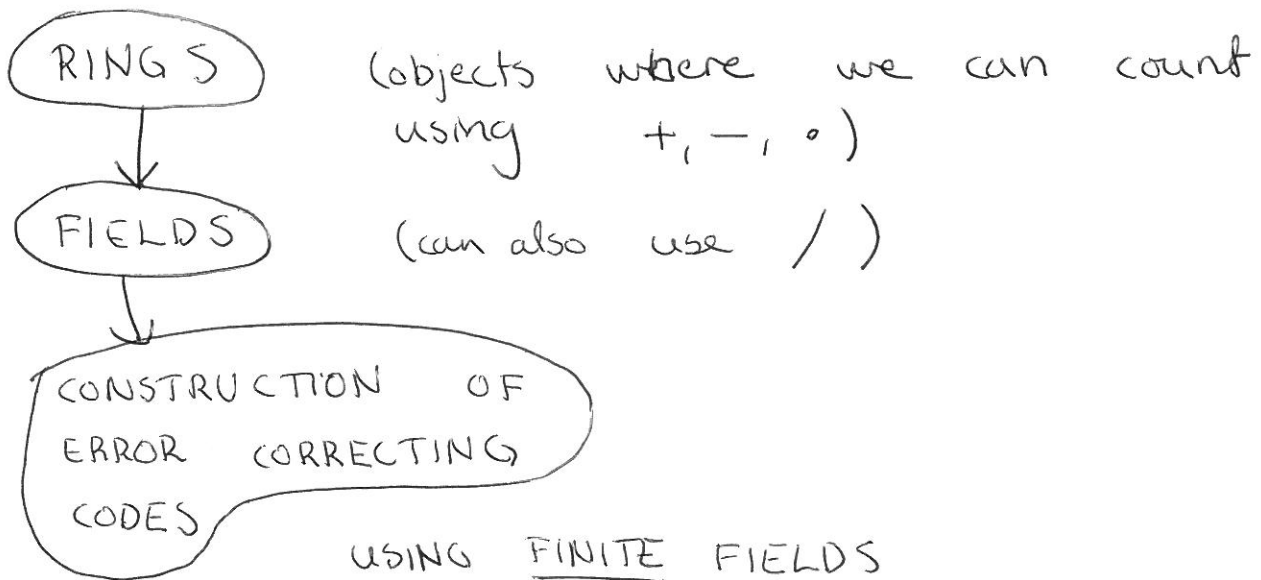 RINGS (objects where we can count
using +, -, ·)
FIELDS (can also use / )
CONSTRUCTION OF
ERROR CORRECTING
CODES
USING FINITE FIELDS